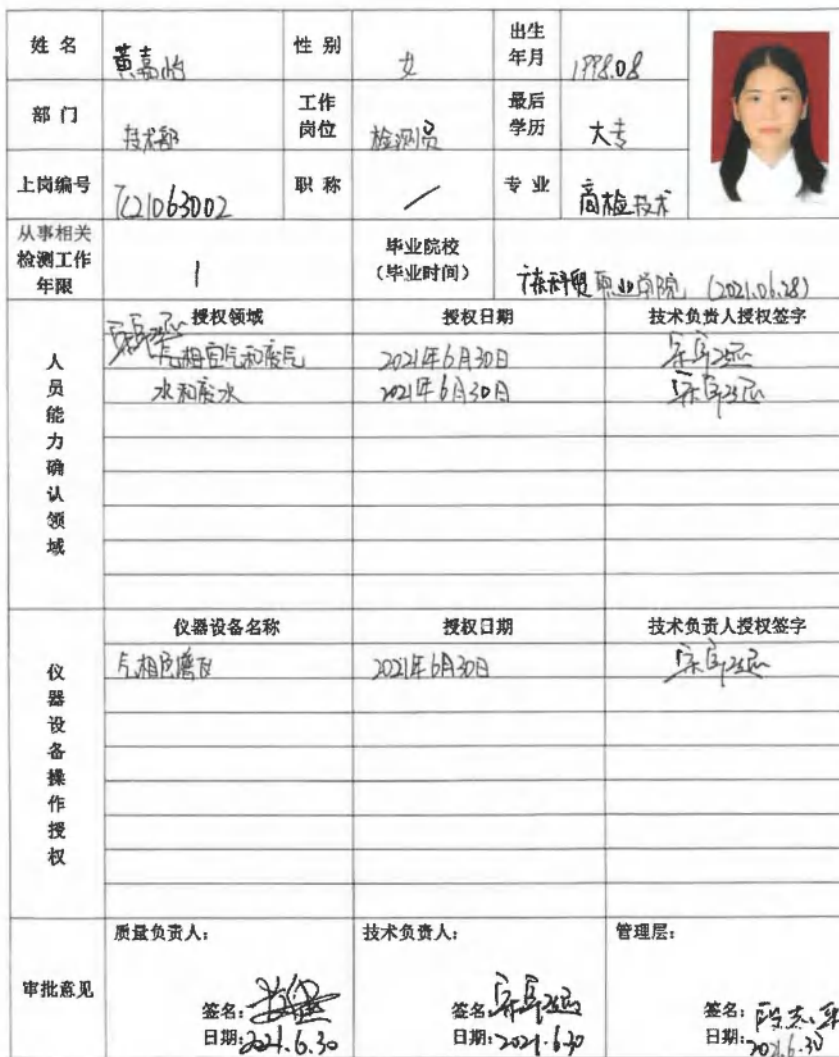 姓 名 黄嘉怡 性 别 女 出生年月 1998.08
部 门 技术部 工作岗位 检测员 最后学历 大专
上岗编号 7C21063002 职 称 / 专 业 商检技术
从事相关检测工作年限 1 毕业院校（毕业时间） 广东科贸职业学院 (2021.06.28)
人员能力确认领域
授权领域 授权日期 技术负责人授权签字
气相空气和废气 2021年6月30日
水和废水 2021年6月30日
仪器设备操作授权
仪器设备名称 授权日期 技术负责人授权签字
气相色谱仪 2021年6月30日
审批意见
质量负责人： 技术负责人： 管理层：
签名： 签名： 签名：
日期：2021.6.30 日期：2021.6.30 日期：2021.6.30